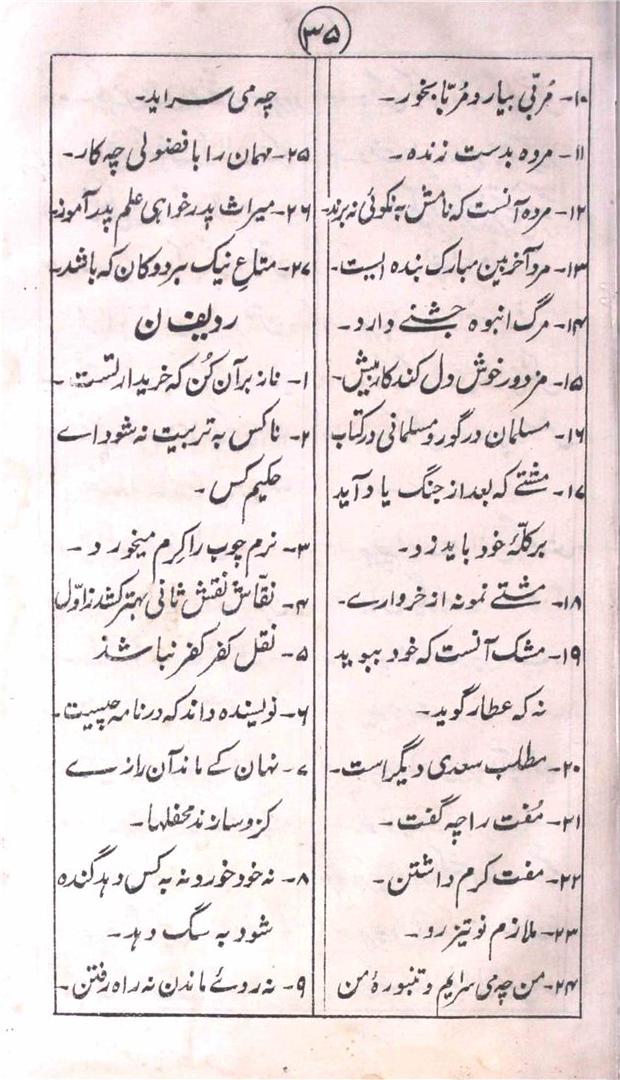 ۳۵
۱۰- مُربّی بیار و مُربّا بخور۔
۱۱- مردہ بدست زندہ۔
۱۲- مردہ آنست کہ نامش بہ نکوئی نہ برند۔
۱۳- مرد آخر بین مبارک بندہ ایست۔
۱۴- مرگ انبوہ جشنے دارد۔
۱۵- مزدور خوش دل کند کار بیش۔
۱۶- مسلمان در گور و مسلمانی در کتاب
۱۷- مشتے کہ بعد از جنگ یاد آید
بر کلّۂ خود باید زد۔
۱۸- مشتے نمونہ از خروارے۔
۱۹- مشک آنست کہ خود ببوید
نہ کہ عطار گوید۔
۲۰- مطلب سعدی دیگر است۔
۲۱- مُفت را چہ گفت۔
۲۲- مفت کرم داشتن۔
۲۳- ملازم نو تیز رو۔
۲۴- من چہ می سرایم و تنبورۂ من
چہ می سراید۔
۲۵- مہمان را با فضولی چہ کار۔
۲۶- میراث پدر خواہی علم پدر آموز۔
۲۷- متاعِ نیک ہر دوکان کہ باشد۔
ردیف ن
۱- ناز بر آن کُن کہ خریدار تست۔
۲- ناکس بہ تربیت نہ شود اے
حکیم کس۔
۳- نرم چوب را کِرم میخورد۔
۴- نقّاش نقش ثانی بہتر کشد ز اوّل
۵- نقل کفر کفر نباشد
۶- نویسندہ داند کہ در نامہ چیست۔
۷- نہان کے ماند آن رازے
کزو سازند محفلہا۔
۸- نہ خود خورد نہ بہ کس دہد گندہ
شود بہ سگ دہد۔
۹- نہ روئے ماندن نہ راہ رفتن۔